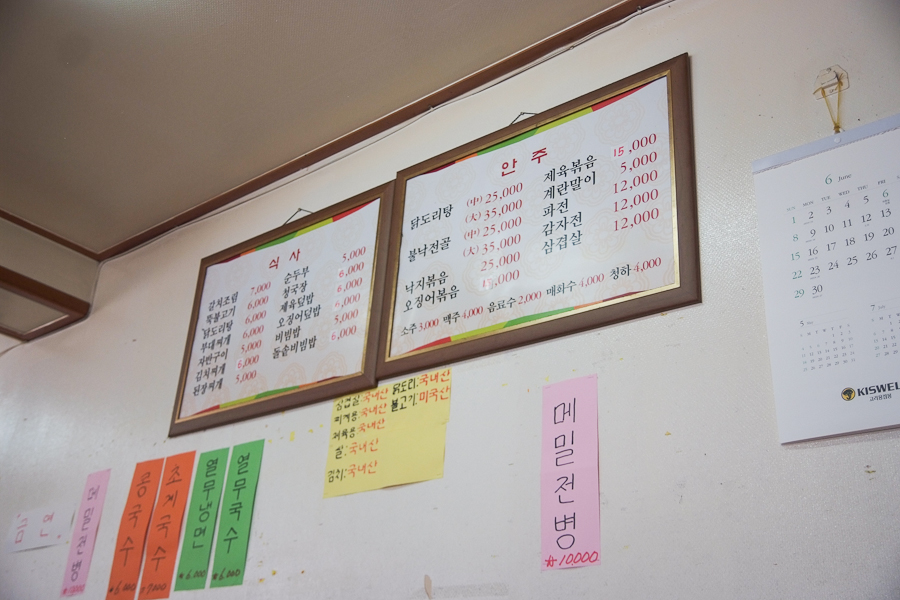 식 사
갈치조림 7,000
뚝불고기 6,000
닭도리탕 6,000
부대찌개 6,000
자반구이 6,000
김치찌개 6,000
된장찌개 5,000
순두부 5,000
청국장 6,000
제육덮밥 6,000
오징어덮밥 6,000
비빔밥 5,000
돌솥비빔밥 6,000
안 주
닭도리탕 (中) 25,000
(大) 35,000
불낙전골 (中) 25,000
(大) 35,000
낙지볶음 25,000
오징어볶음
제육볶음 15,000
계란말이 5,000
파전 12,000
감자전 12,000
삼겹살 12,000
소주 3,000 맥주 4,000 음료수 2,000 매화수 4,000 청하 4,000
삼겹살:국내산 닭도리:국내산
찌개용:국내산 불고기:미국산
제육용:국내산
쌀:국내산
김치:국내산
금연
메밀전병
콩국수
₩6,000
초계국수
7,000
열무냉면
₩6,000
열무국수
₩6,000
메밀전병
₩10,000
6 June
1 2 3 4 5 6
8 9 10 11 12 13
15 16 17 18 19 20
22 23 24 25 26 27
29 30
5
7
KISWEL
고려용접봉